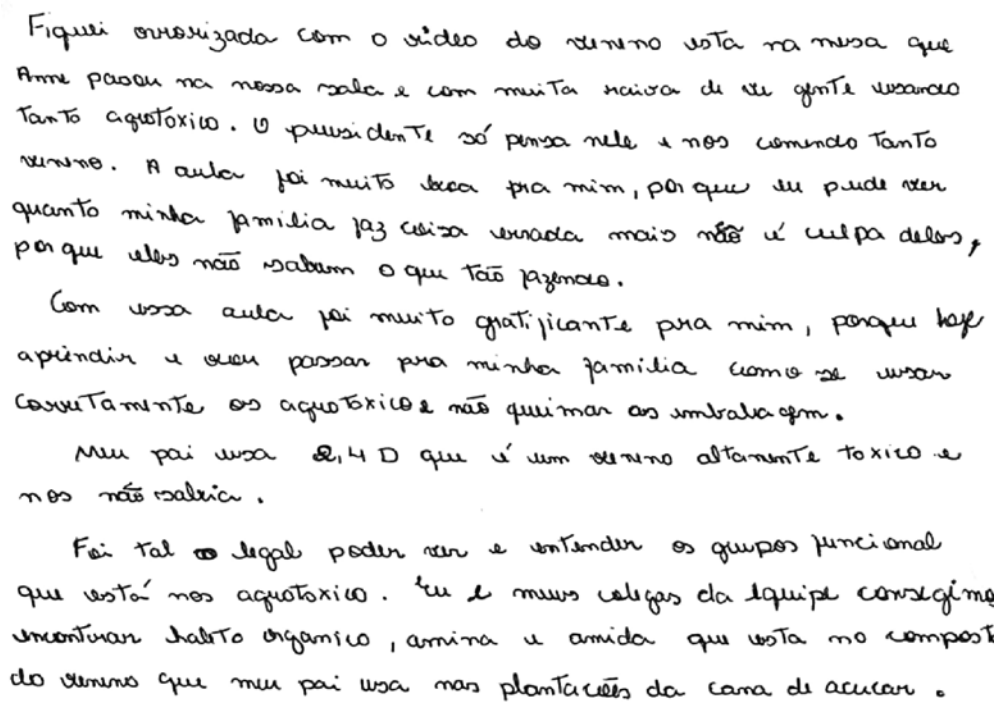 Fiquei orrorizada com o video do veneno esta na mesa que
Anne passou na nossa sala e com muita raiva de ve gente usando
tanto agrotóxico. O preusidente só pensa nele e nos comendo tanto
veneno. A aula foi muito boa pra mim, por que eu pude ver
quanto minha familia faz coisa errada mais não é culpa deles,
por que eles não sabem o que tão fazendo.
Com essa aula foi muito gratificante pra mim, porque hoje
aprendir e vou passar pra minha familia como se usar
corretamente os agrotoxicos e não queimar as embalagem.
Meu pai usa 2,4 D que é um veneno altamente toxico e
nos não sabia.
Foi tal legal poder ver e entender os grupos funcional
que está nos agrotoxico. Eu e meus colegas da equipe consegimos
encontrar haleto organico, amina e amida que esta no composto
do veneno que meu pai usa nas plantações da cana de acucar.